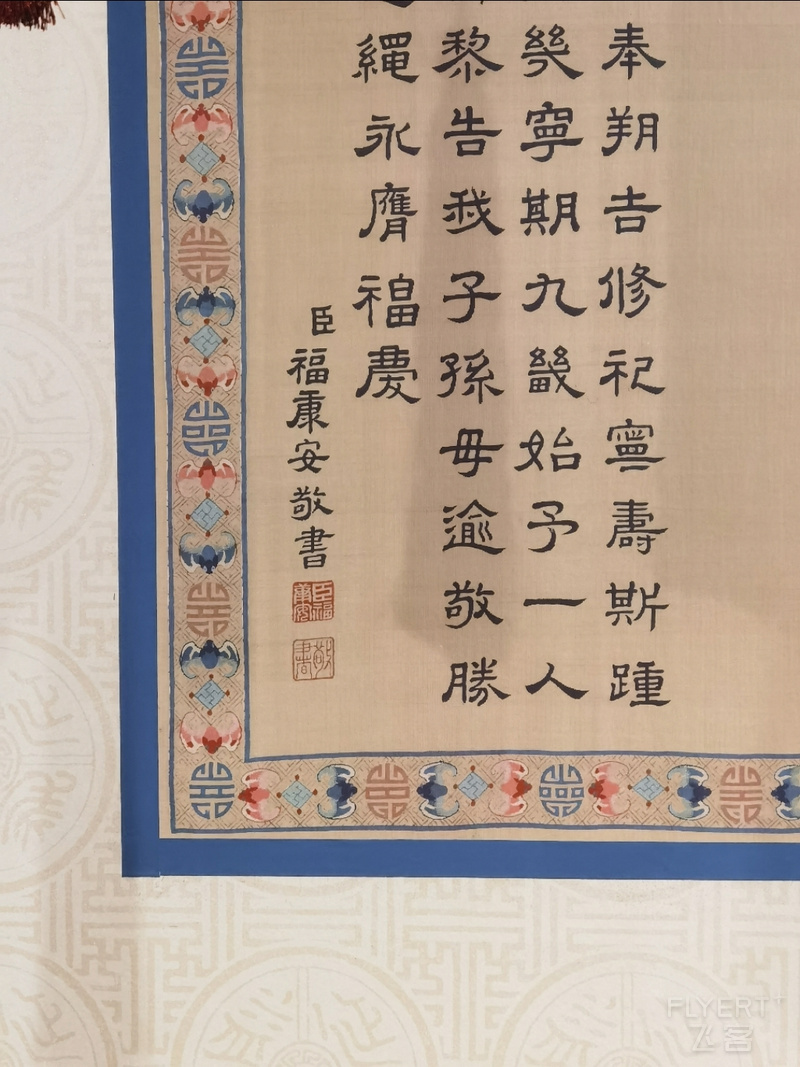 奉朔告修祀寧壽斯踵
幾寧期九畿始予一人
黎告我子孫毋逾敬勝
繩永膺福慶
臣福康安敬書
臣福康安
敬書
FLYERT+
飞客